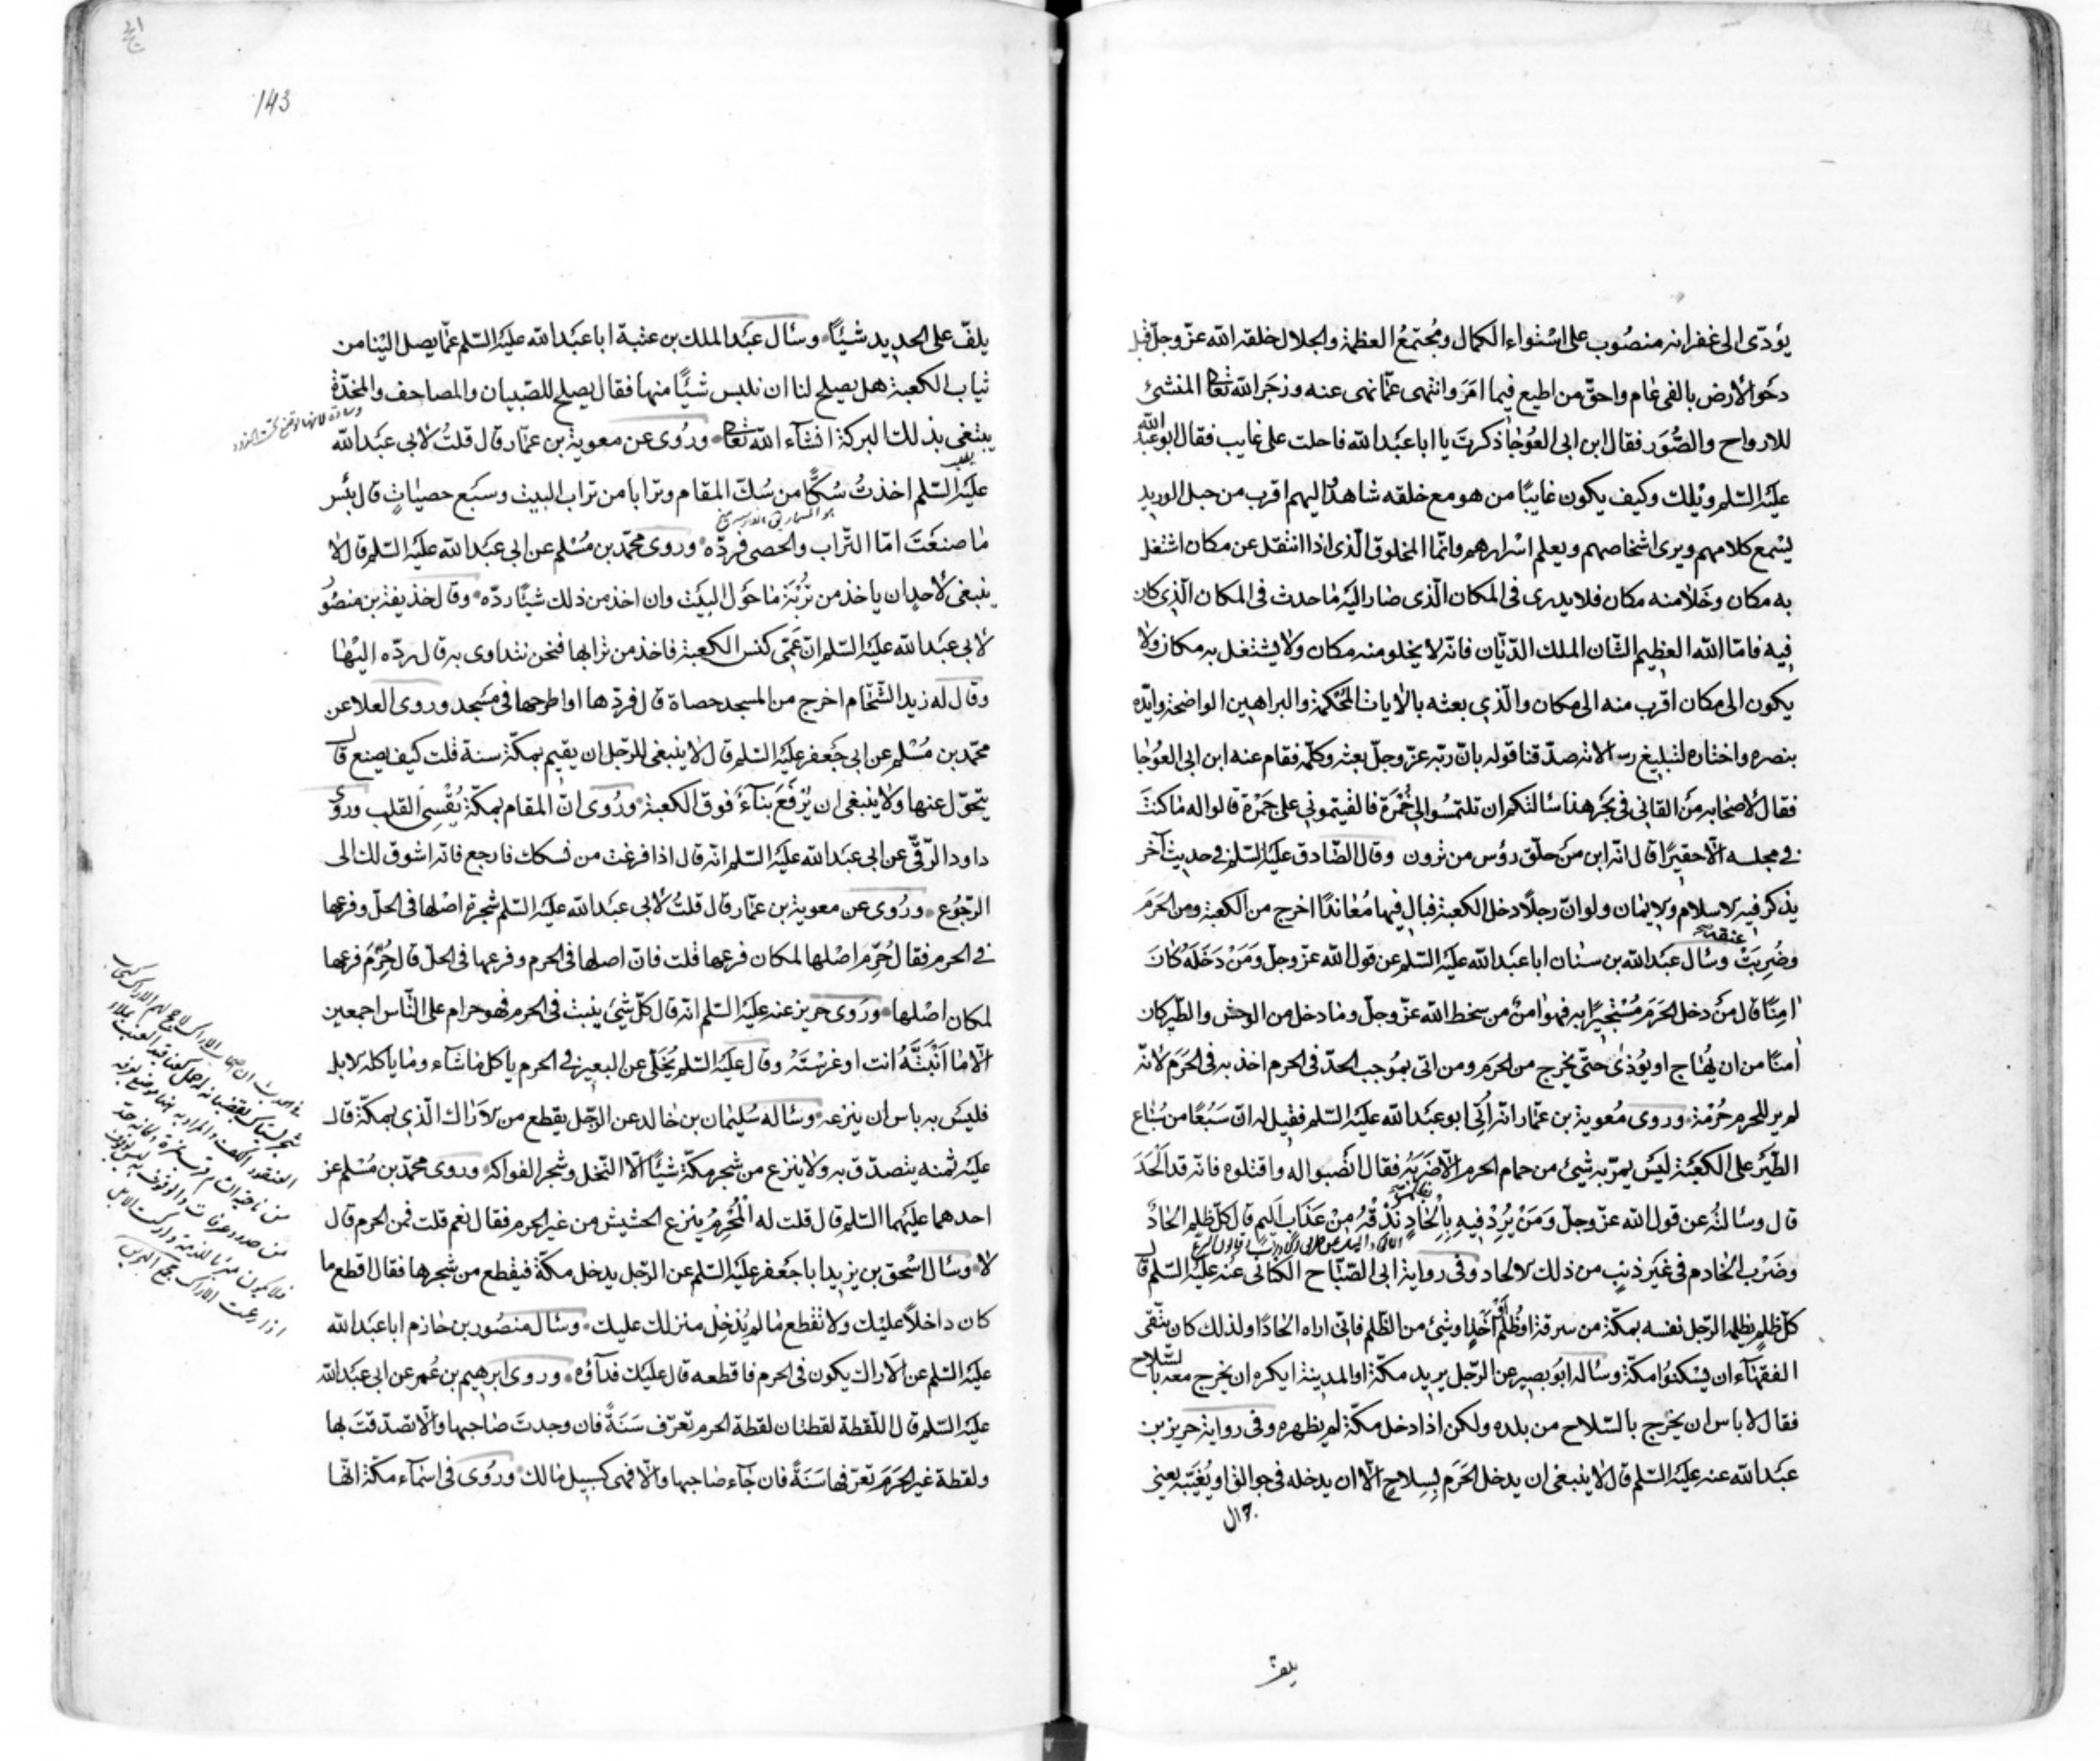 يؤدّى الى غفرانه منصُوب على اسْتواء الكمال ومُجتمعُ العظمة والجلال خلقه الله عزّ وجلّ قبل
دحَو الارض بالفى عٰام واحقّ من اطيع فيما امَرَ وانتهى عمّا نهى عنه وزجَر الله تعالى المنشئ
للارواح والصُّوَر فقال ابن ابى العَوُجٰا ذكرتَ يا ابا عبَد الله فاحلت على غايب فقال ابو عبد الله
عليَه السّلم ويْلك وكيف يكون غايبًا من هو مع خلقه شاهدٌ اليهم اقرب من حبل الوريد
يسْمع كلامهم ويرى اشخاصهم ويعلم اسْرارهم وانّما المخلوق الّذى اذا انتقل عن مكان اشتغل
به مكان وخَلٰا منه مكان فلا يدرى فى المكان الّذى صٰار اليَه مٰا حدث فى المكان الّذى كان
فيه فامّا الله العظيم الشان الملك الدّيّان فانّه لا يخلو منه مكان ولا يشتغل به مكان ولا
يكون الى مكان اقرب منه الى مكان والّذى بعثه بالاٰيات المُحْكمة والبراهين الواضحة وايّده
بنصره واختاره لتبليغ رسالاته صدّقنا قوله بانّ ربّه عزّ وجلّ بعثه وكلّمه فقام عنه ابن ابى العَوُجٰا
فقال لاصْحٰابه منَ القانى فى بحَر هذا سٰالتكم ان تلتمسُوا لى خُمْرَة فالقيتمونى على جَمْرة قالوا له مٰا كنتَ
فى مجلسه الّا حقيرًا قال انّه ابن منَ حلَق رؤس من ترون وقال الصّادق عليَه السّلم فى حديث آخر
يذكر فيه الاسلام والايمٰان ولو انّ رجلًا دخل الكعبة فبال فيها مُعٰاندًا اخرج من الكعبة ومن الحرَمَ
وضُرِبَتْ عنقه وسٰال عبَد الله بن سنٰان ابا عبَد الله عليَه السّلم عن قول الله عزّ وجلّ وَمَنْ دَخَلَهُ كٰانَ
اٰمِنًا قال منَ دخل الحَرَمَ مُسْتَجيرًا به فهوَ اٰمنٌ من سخط الله عزّ وجلّ ومٰا دخل من الوحش والطّير كان
اٰمنًا من ان يُهٰاج او يُؤذىٰ حتّى يخرج من الحرَمِ ومن اتى بموُجب الحدّ فى الحرم اخذ به فى الحَرَمَ لانّه
لم ير للحرم حُرْمَة وروى مُعٰوية بن عمّار انّه اُتِىَ ابو عبَد الله عليَه السّلم فقيل له انّ سَبُعًا من سُبٰاع
الطّيَر على الكعبَة ليَس يمرّ به شيئ من حمام الحرم الّا ضَرَبَهُ فقال انصَبوا له واقتلوه فانّه قد اَلْحَدَ
قال وسٰالتهُ عن قول الله عزّ وجلّ وَمَنْ يُرِدْ فيهِ بِاِلْحٰادٍ بظلمٍ نُذِقْهُ مِنْ عَذٰابٍ اَليمٍ قال كلّ ظلم الحٰادٌ
وضَرْب الخٰادم فى غيَر ذنبٍ من ذلك الالحاد وفى رواية ابى الصّبّاح الكنٰانى عنَه عليَه السّلم قال
كلّ ظلم يظلمه الرّجل نفسه بمكّة من سرقة او ظُلم اَحَدٍ او شيئ من الظّلم فانّى اراه الحٰادًا ولذلك كان يتّقى
الفقهٰآء ان يسْكنوُا مكّة وسٰاله ابوُ بصير عن الرّجل يريد مكّة او المدينة ايكره ان يخرج معه بالسّلاح
فقال لا باس ان يخرج بالسّلاح من بلده ولكن اذا دخل مكّة لم يظهره وفى رواية حريز بن
عبَد الله عنه عليَه السّلم قال لا ينبغى ان يدخل الحَرَم بِسِلٰاحٍ الّا ان يدخله فى جوالق او يُغَيّبه يعنى
يلفّ
143
يلفّ على الحديد شيْئًا وسٰال عبَد الملك بن عتبة ابا عبَد الله عليَه السّلم عمّا يصل اليْنا من
ثياب الكعبة هل يصلح لنا ان نلبس شيئًا منها فقال يصلح للصّبيان والمصاحف والمخدّة
يبتغى بذلك البركة انشآء الله تعالى وروُى عن معوية بن عمّار قال قلتُ لابى عبَد الله
عليَه السّلم اخذتُ سُكًّا من سُكّ المقام وترابا من تراب البيت وسبَع حصيٰاتٍ قال بئس
مٰا صنعَتَ امّا التّراب والحصى فردّه وروى محمّد بن مسْلم عن ابى عبَد الله عليَه السّلم قال لا
ينبغى لاحدٍ ان ياخذ من تُرْبَة مٰا حوَل البيَت وان اخذ من ذلك شيئًا ردّه وقال حذيفة بن منصُوُر
لابى عبَد الله عليَه السّلم انّ عَمّى كنس الكعبة فاخذ من ترابها فنحن نتداوى به قال ردّه اليْهٰا
وقال له زيد الشّحّام اخرج من المسجد حصاة قال فردّها او اطرحها فى مسَجد وروى العلا عن
محمّد بن مُسْلم عن ابى جَعفر عليَه السّلم قال لا ينبغى للرّجل ان يقيم بمكّة سنة قلت كيف يصنع قال
يتحوّل عنها ولا ينبغى ان يُرْفَعَ بنآءٌ فوق الكعبة وروُى انّ المقام بمكّة يُقْسِى القلب وروى
داود الرّقّى عن ابى عبَد الله عليَه السّلم انّه قال اذا فرغت من نسكك فارجع فانّه اشوق لك الى
الرّجوُع وروُى عن معوية بن عمّار قال قلتُ لابى عبَد الله عليَه السّلم شجرة اصْلها فى الحلّ وفرعها
فى الحرم فقال حُرِّمَ اصْلها لمكان فرعها قلت فانّ اصلها فى الحرم وفرعها فى الحلّ قال حُرِّمَ فرعها
لمكان اصْلها وروَى حريز عنه عليَه السّلم انّه قال كلّ شيئ ينبت فى الحرم فهو حرام على النّاس اجمعين
الّا مٰا اَنْبَتَّهُ انت او غرسْتَهُ وقال عليَه السّلم يُخَلّى عن البعير فى الحرم ياكل مٰا شٰاء ومٰا ياكله الابل
فليَس به باس ان ينزعه وسٰاله سُليمٰان بن خٰالد عن الرّجل يقطع من الاَرٰاك الّذى بمكّة قال
عليَه ثمنه يتصدّق به ولا ينزع من شجر مكّة شيئًا الّا النّخل وشجر الفواكه وروى محمّد بن مسْلم عن
احدهما عليَهما السّلم قال قلت له اَلْمُحْرِمُ ينزع الحشيش من غير الحرم فقال نعم قلت فمن الحرم قال
لا وسٰال اسْحق بن يزيد ابا جَعفر عليَه السّلم عن الرّجل يدخل مكّة فيقطع من شجرها فقال اقطع ما
كان داخلًا عليْك ولا تقطع مٰا لم يَدْخِلْ منزلك عليك وسٰال منصُور بن حٰازم ابا عبَد الله
عليَه السّلم عن الاَراك يكون فى الحرم فاقطعه قال عليَك فدآؤه وروى ابرهيم بن عُمر عن ابى عبَد الله
عليَه السّلم قال اللّقطة لقطتان لقطة الحرم تعرّف سَنَةً فان وجدتَ صٰاحبها والّا تصدّقتَ بها
ولقطة غير الحَرَمَ تعرّفها سَنَةً فان جٰآء صٰاحبها والّا فهى كسبيل مٰالك وروُى فى اسْمآء مكّة انّها